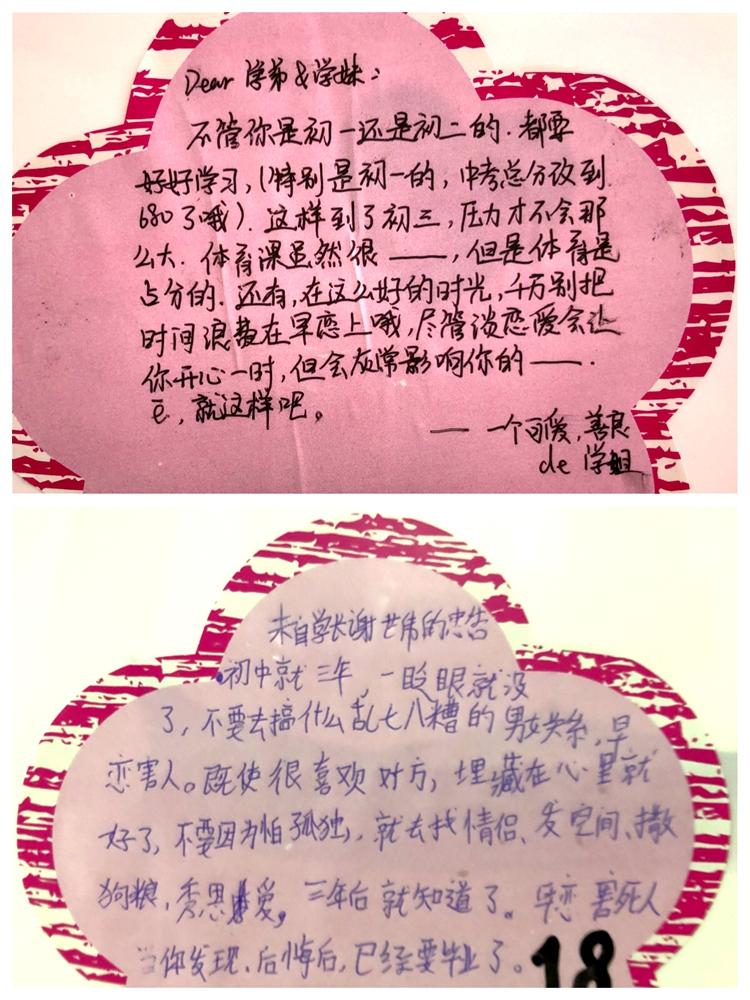 Dear 学弟&学妹:
不管你是初一还是初二的.都要
好好学习,(特别是初一的,中考总分改到
680了哦).这样到了初三,压力才不会那
么大.体育课虽然很——,但是体育是
占分的.还有,在这么好的时光,千万别把
时间浪费在早恋上哦,尽管谈恋爱会让
你开心一时,但会灰常影响你的——.
е,就这样吧。
—— 一个可爱,善良
de 学姐
来自学长谢世伟的忠告
初中就三年,一眨眼就没
了,不要去搞什么乱七八糟的男女关系,早
恋害人。既使很喜欢对方,埋藏在心里就
好了,不要因为怕孤独,就去找情侣、发空间、撒
狗粮,秀恩爱,三年后就知道了。早恋害死人
当你发现、后悔后,已经要毕业了。
18